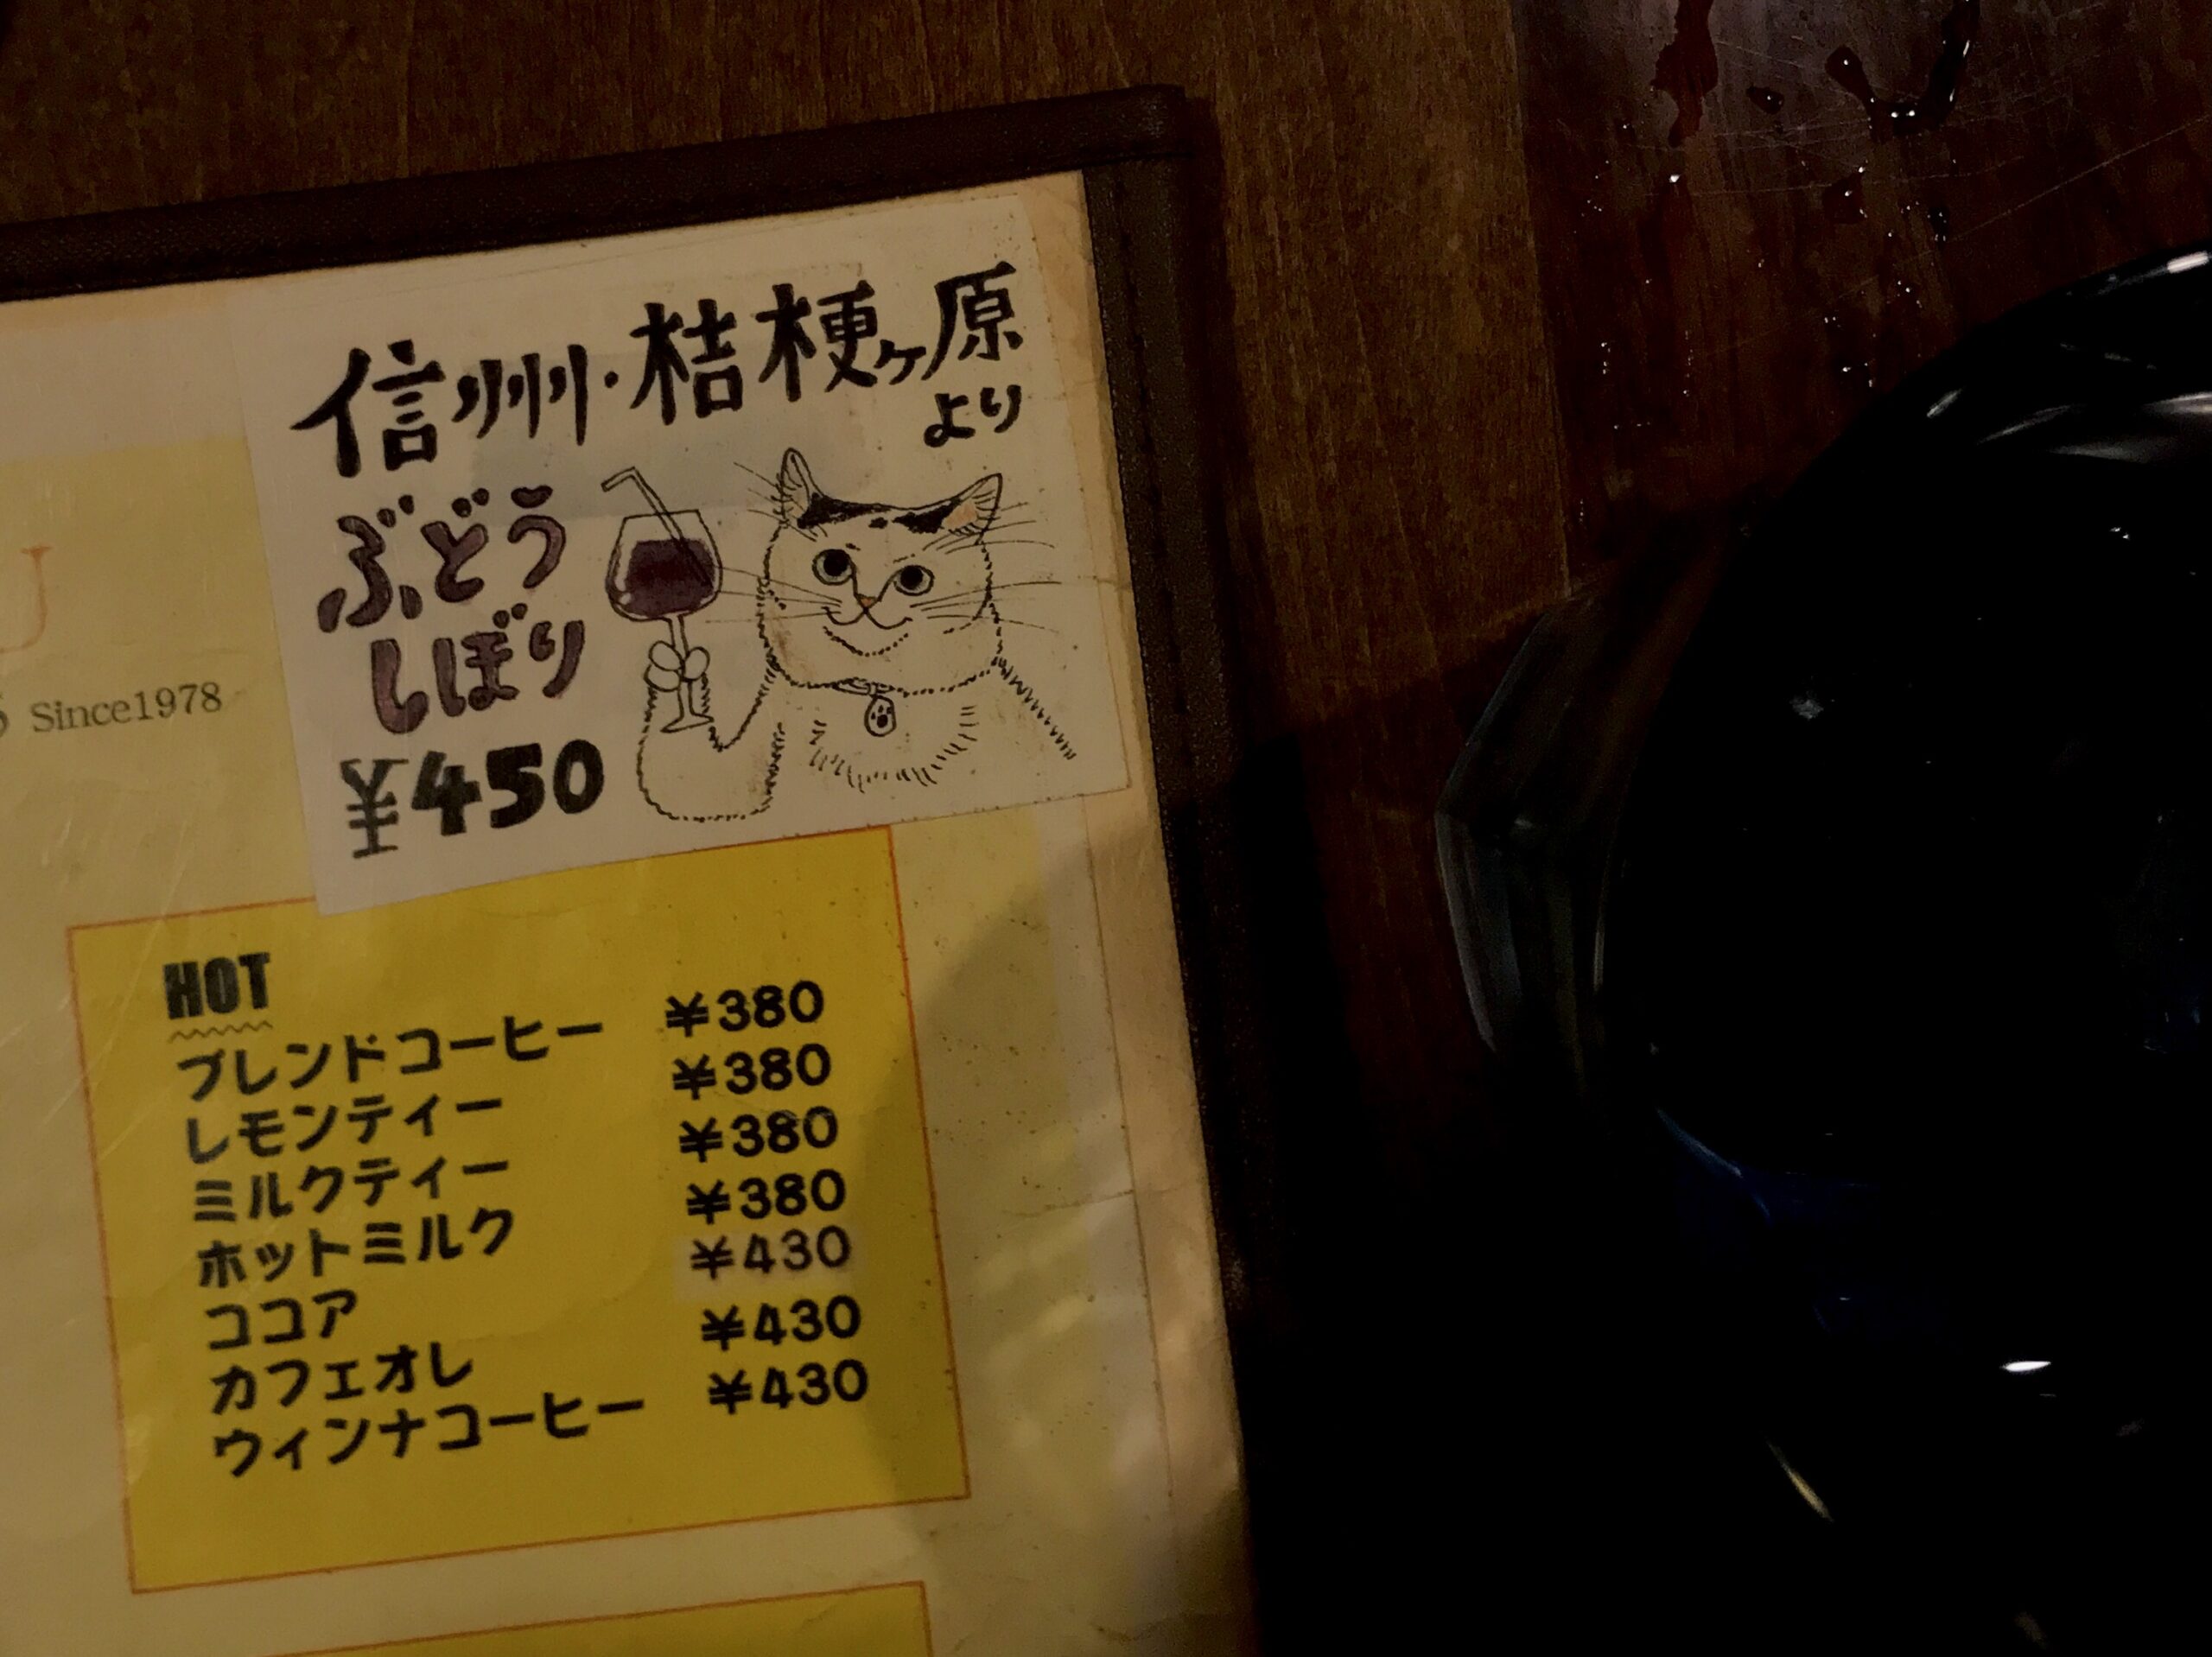 信州・桔梗ヶ原
より
ぶどう
しぼり
¥450
Since1978
HOT
ブレンドコーヒー ¥380
レモンティー ¥380
ミルクティー ¥380
ホットミルク ¥380
ココア ¥430
カフェオレ ¥430
ウィンナコーヒー ¥430